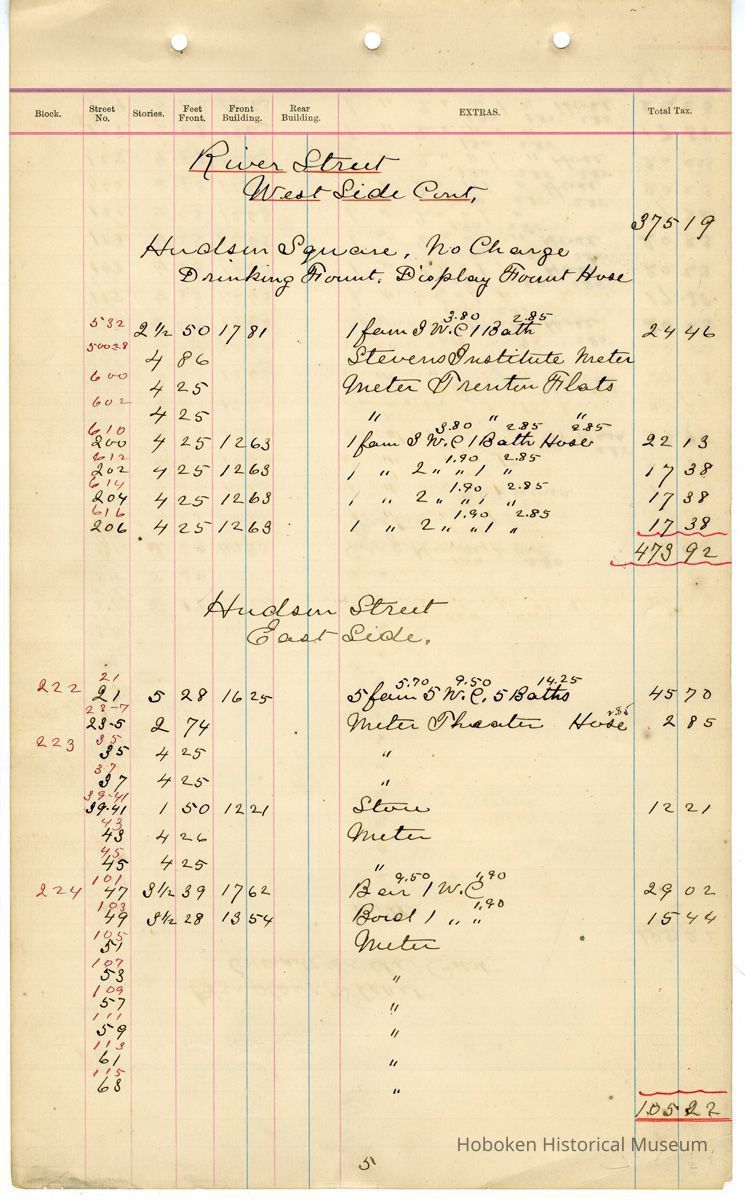 Block. Street No. Stories. Feet Front. Front Building. Rear Building. EXTRAS. Total Tax.
River Street
West Side Cont,
375 19
Hudson Square, No Charge
Drinking Fount. Display Fount Hose
532 3.80 2.85
2 1/2 50 17 81 1 fam 3 W.C 1 Bath 24 46
4 86 Stevens Institute Meter
600
4 25 Meter Trenton Flats
602
4 25 " " "
610 3.80 2.85 2.85
200 4 25 12 63 1 fam 3 W.C 1 Bath Hose 22 13
612 1.90 2.85
202 4 25 12 63 1 " 2 " " 1 " 17 38
614 1.90 2.85
204 4 25 12 63 1 " 2 " " 1 " 17 38
616 1.90 2.85
206 4 25 12 63 1 " 2 " " 1 " 17 38
473 92
Hudson Street
East Side.
21 5.70 9.50 14.25
222 21 5 28 16 25 5 fam 5 W.C. 5 Baths 45 70
23-7 2.85
23-5 2 74 Meter Theater Hose 2 85
35
223 35 4 25 "
37
37 4 25 "
39-41
39-41 1 50 12 21 Store 12 21
43
43 4 26 Meter
45
45 4 25 "
101 9.50 1.90
224 47 3 1/2 39 17 62 Bar 1 W.C 29 02
103 1.90
49 3 1/2 28 13 54 1 " " 15 44
105
51 Meter
107
53 "
109
57 "
111
59 "
113
61 "
115
63 "
105 22
Hoboken Historical Museum
5